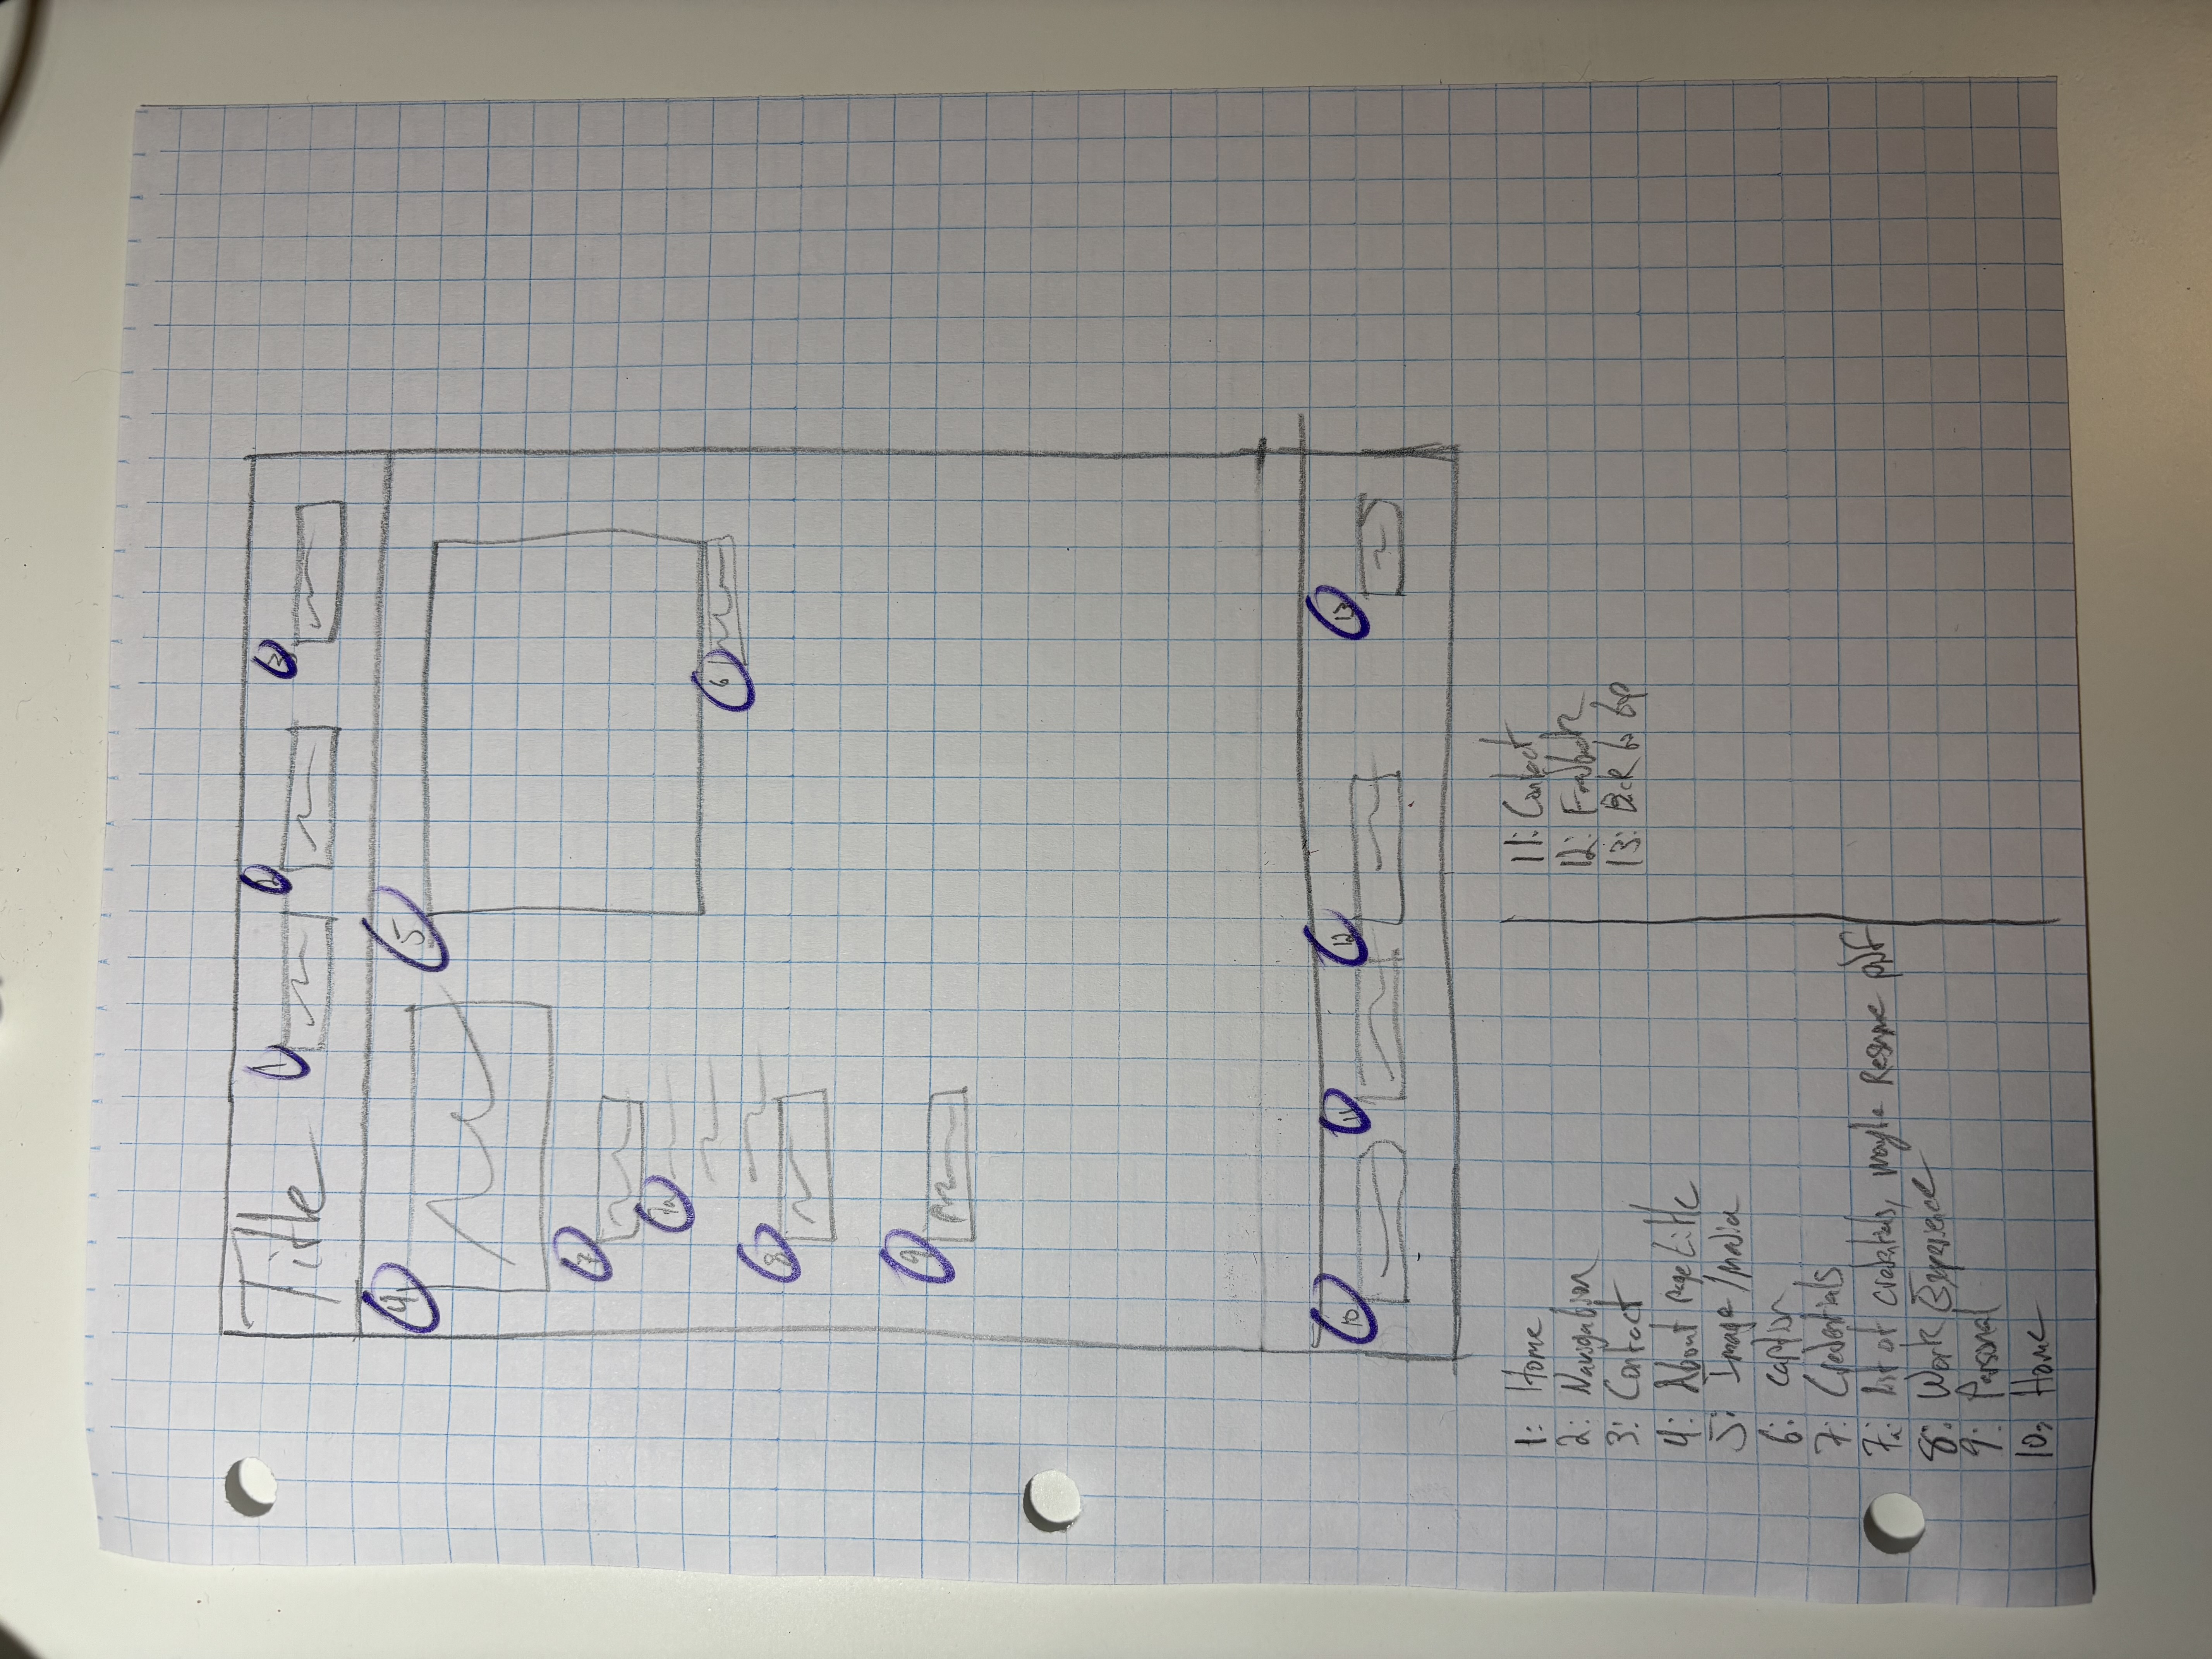 Title
1
2
3
4
5
7
7a
6
8
9
10
11
12
13
1: Home
2: Navigation
3: Contact
4: About page title
5: Image/media
6: caption
7: Credentials
7a: list of credentials, maybe Resume pdf
8: Work Experience
9: Personal
10: Home
11: Contact
12: Feedback
13: Back to top